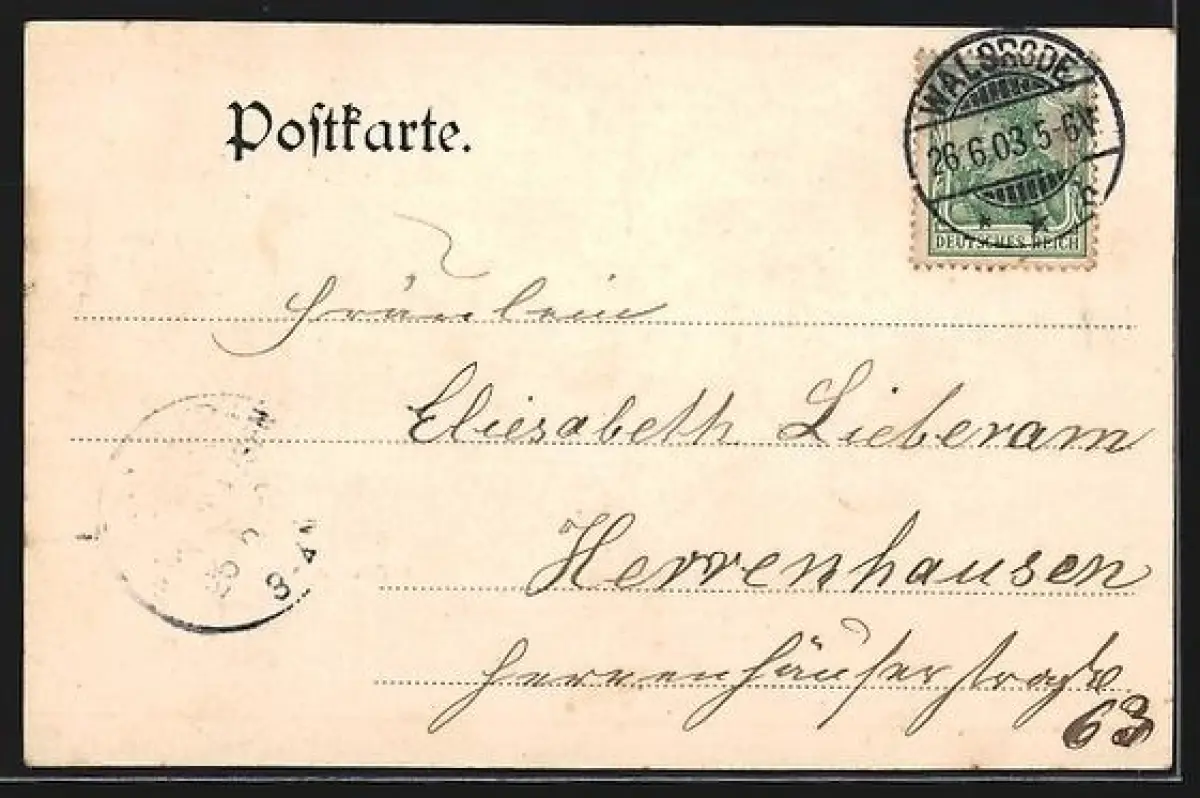 Postkarte.
WALSRODE
26.6.03.5-6V.
DEUTSCHES REICH
Fräulein
Eliesabeth Lieberam
Herrenhausen
Herrenhäuserstraße
63
3-4